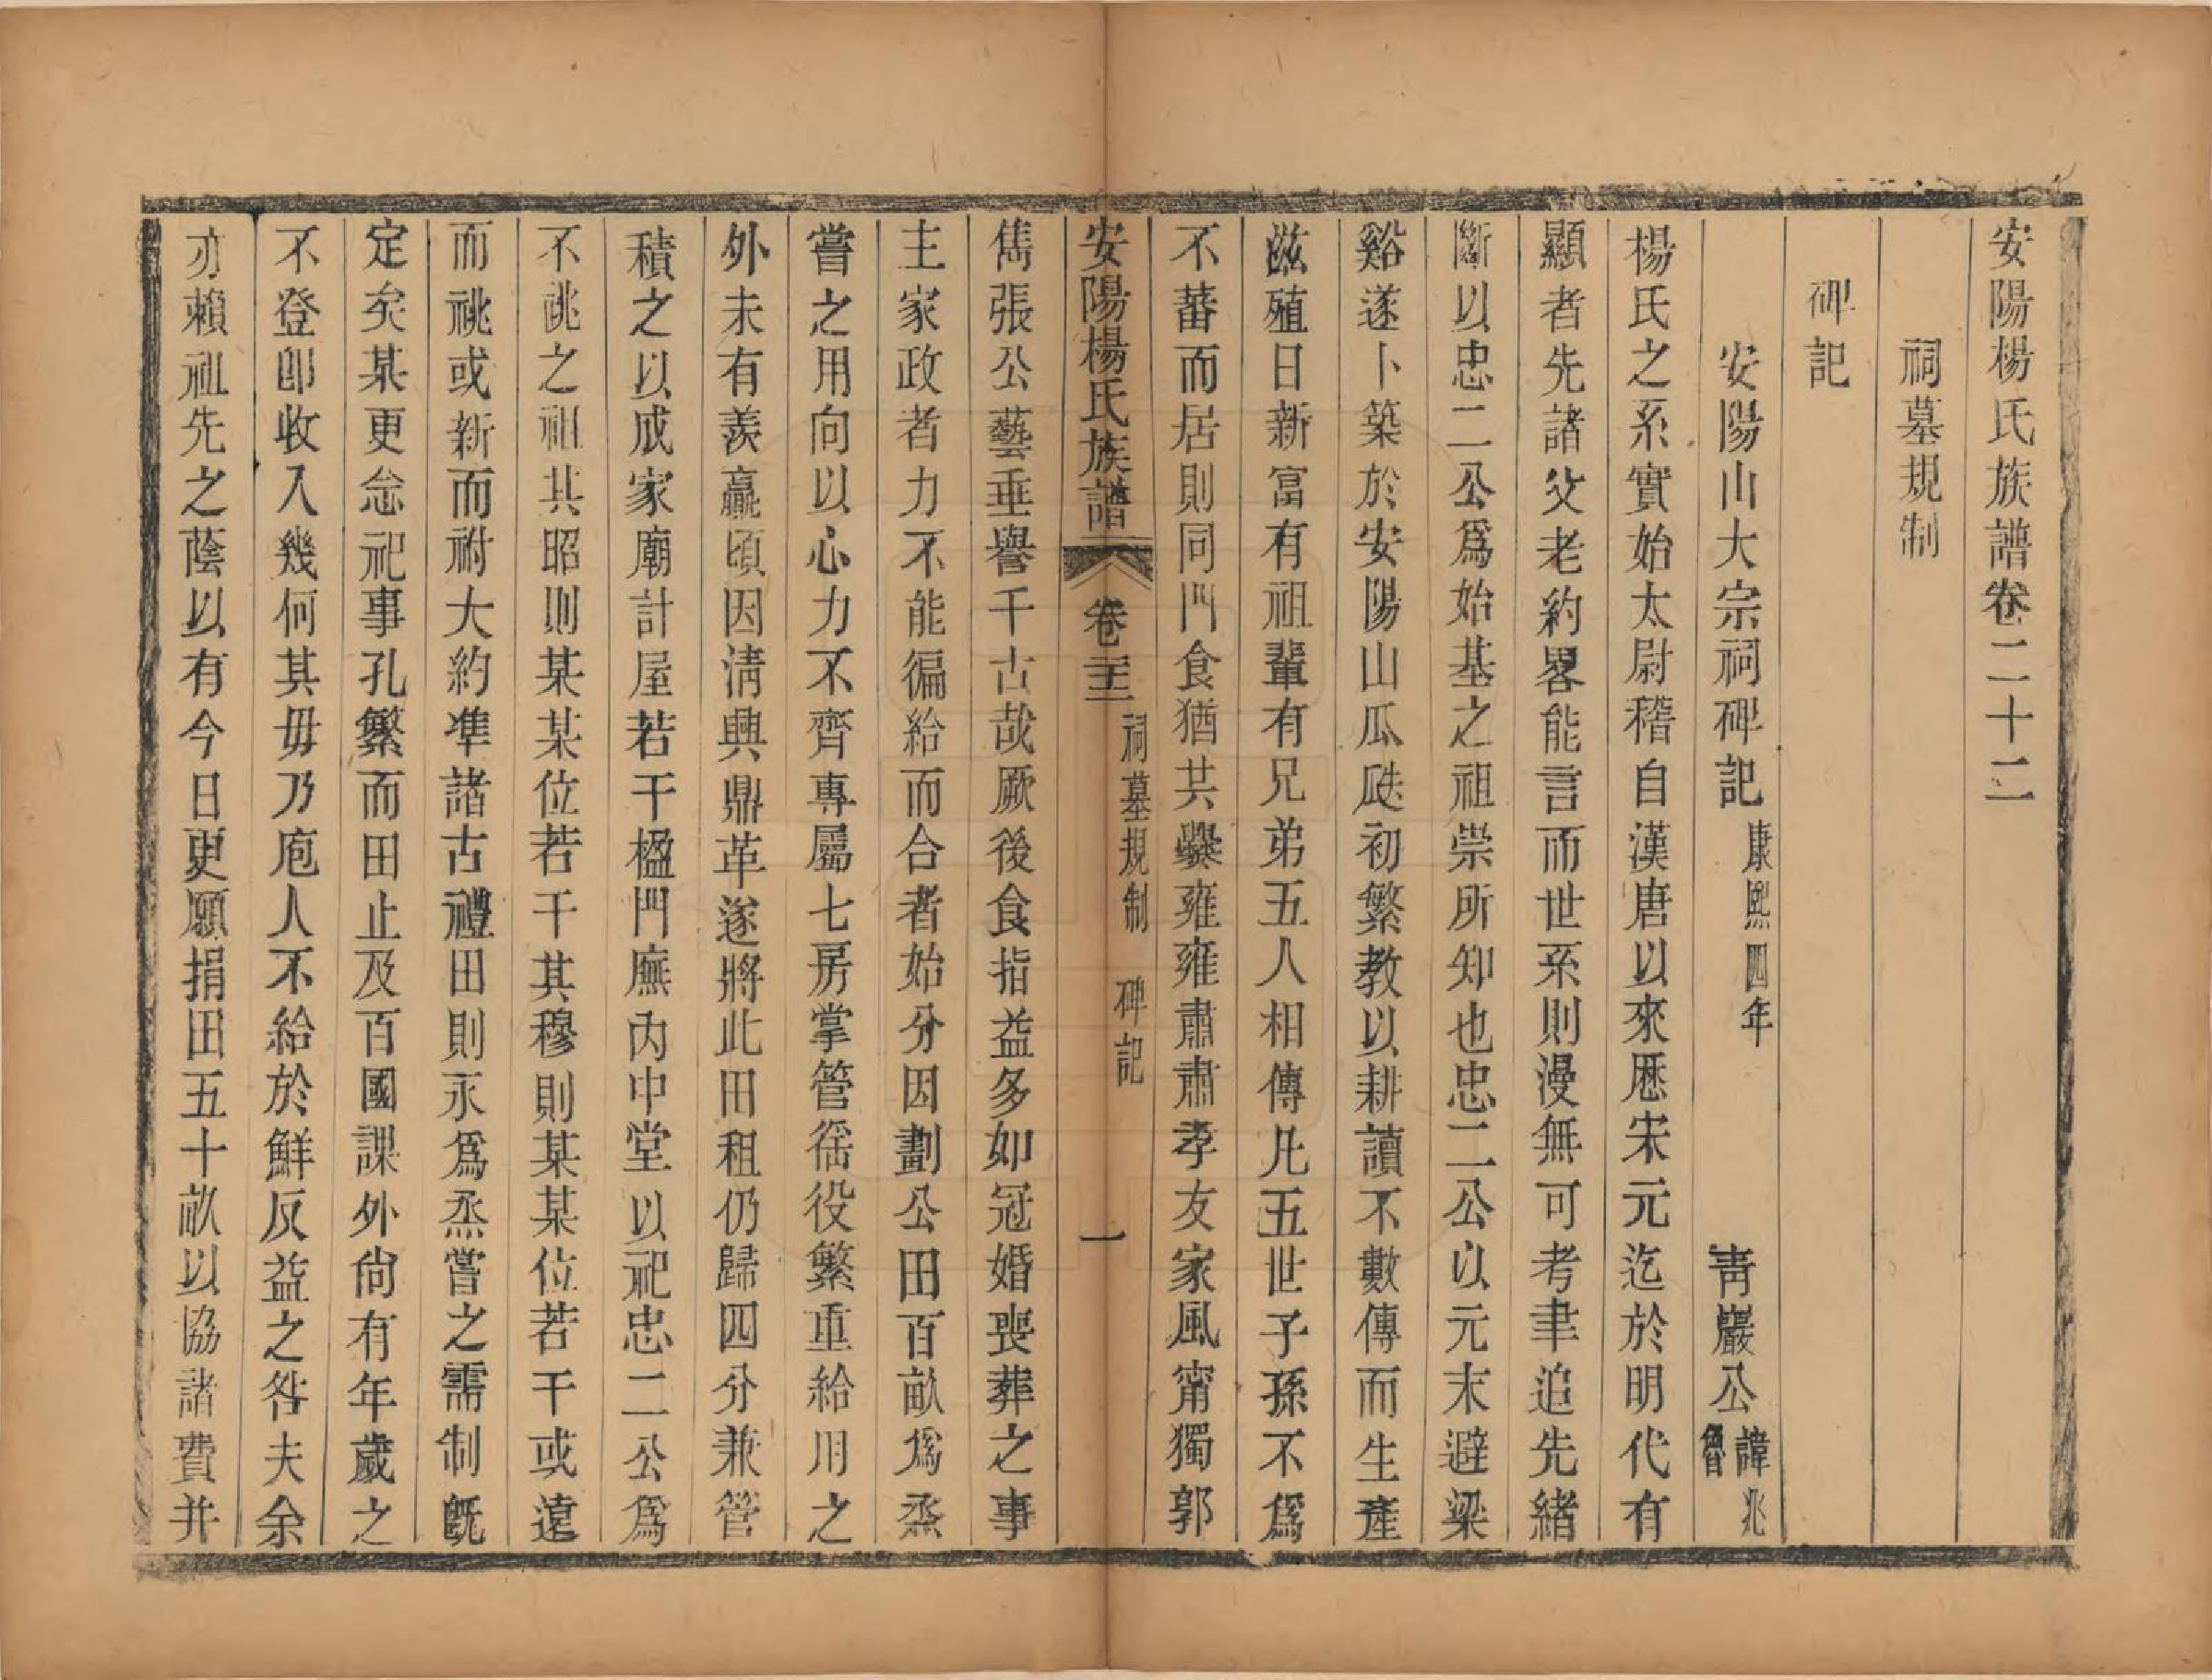 安陽楊氏族譜卷二十二
祠墓規制
碑記
安陽山大宗祠碑記 康熙四年 青巖公 諱兆魯
楊氏之系實始太尉稽自漢唐以來歷宋元迄於明代有
顯者先諸父老約畧能言而世系則漫無可考聿追先緒
斷以忠二公爲始基之祖崇所知也忠二公以元末避梁
谿遂卜築於安陽山瓜瓞初繁教以耕讀不數傳而生產
滋殖日新富有祖輩有兄弟五人相傳凡五世子孫不爲
不蕃而居則同門食猶共爨雍雍肅肅孝友家風甯獨郭
安陽楊氏族譜 卷二十二 祠墓規制 碑記 一
雋張公藝垂譽千古哉厥後食指益多如冠婚喪葬之事
主家政者力不能徧給而合者始分因劃公田百畝爲烝
嘗之用向以心力不齊專屬七房掌管徭役繁重給用之
外未有羨贏頃因淸興鼎革遂將此田租仍歸四分兼管
積之以成家廟計屋若干楹門廡內中堂以祀忠二公爲
不祧之祖其昭則某某位若干其穆則某某位若干或遠
而祧或新而祔大約準諸古禮田則永爲烝嘗之需制旣
定矣某更念祀事孔繁而田止及百國課外尙有年歲之
不登卽收入幾何其毋乃庖人不給於鮮反益之咎夫余
亦賴祖先之蔭以有今日更願捐田五十畝以協諸費并